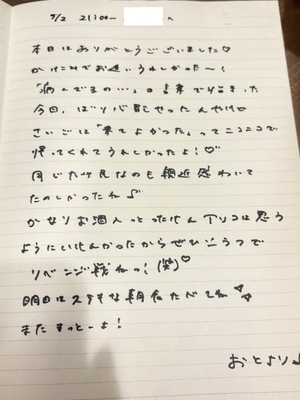 5/2 21:00〜 へ
本日はありがとうございました♡
かけこみでお逢いうれしかった〜!
「病んでるの…」の
今回、ばりバ やったんやけど
さいごは「来てよかった」ってニコニコで
帰ってくれてうれしかったよ!♡
同じ 民なのも親近感わいて
たのしかったね♪
かなりお酒入っとったけん は思う
ようにいけんかったからぜひシラフで
リベンジ戦ねっ!(笑)♡
明日はステキな朝食たべてね
またすっとーよ!
おとより♪